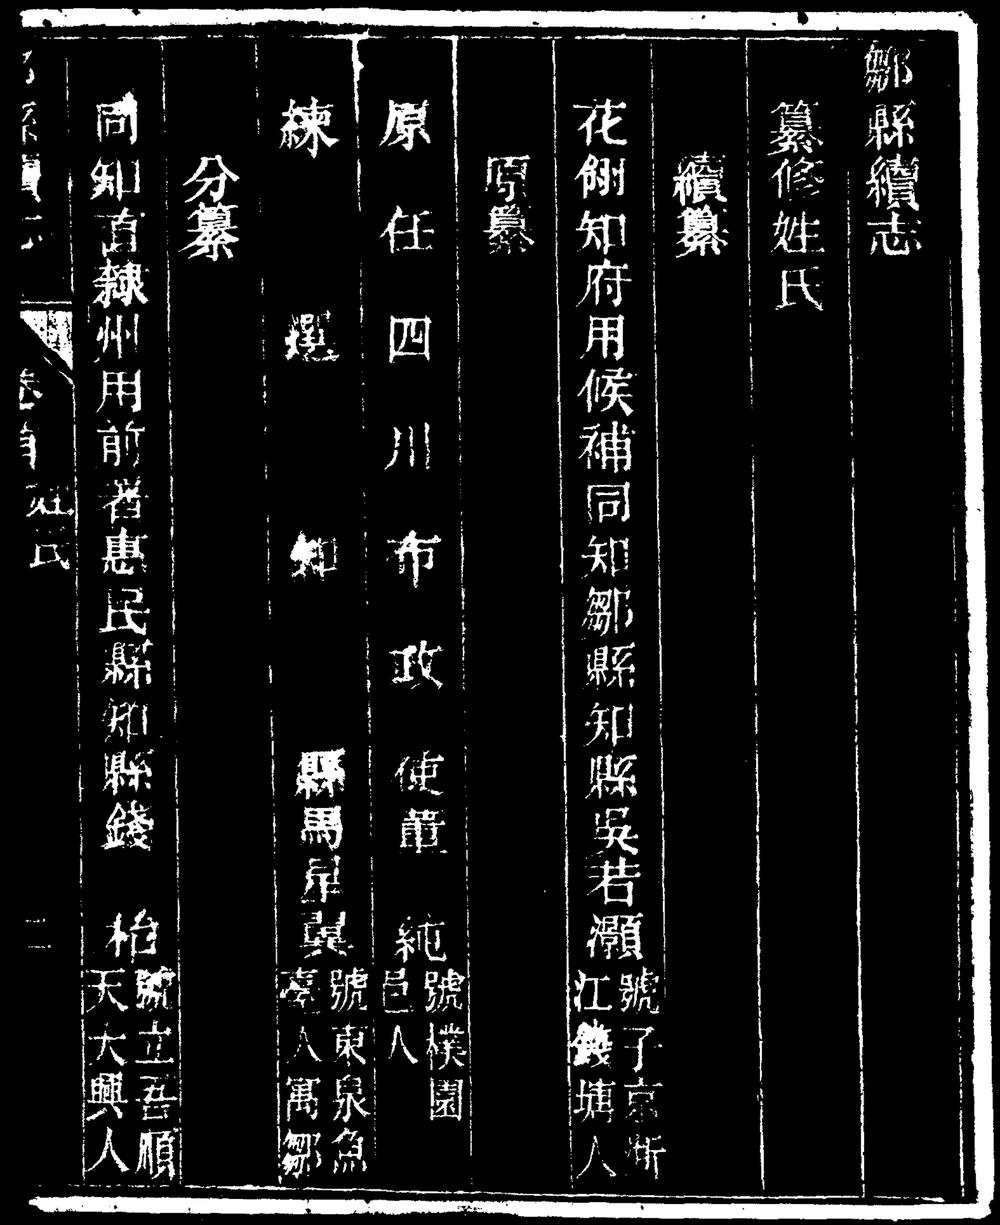 鄒縣續志
纂修姓氏
續纂
花翎知府用候補同知鄒縣知縣吳若灝號子京浙江錢塘人
原纂
原任四川布政使董純號樸園邑人
練選知縣馬星翼號東泉魚臺人寓鄒
分纂
同知直隸州用前署惠民縣知縣錢枱號立吾順天大興人
鄒縣續志 卷首 姓氏 二